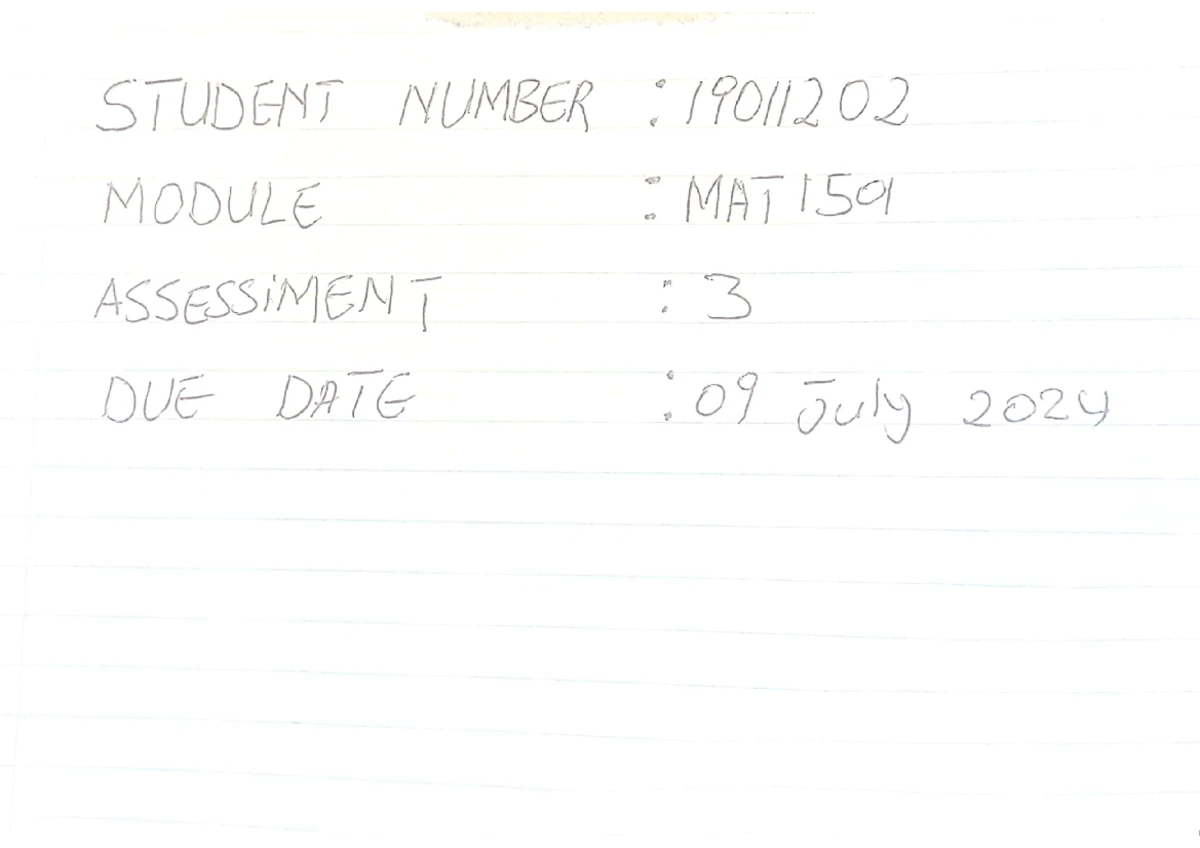 STUDENT NUMBER : 19011202
MODULE : MAT1501
ASSESSiMENT : 3
DUE DATE : 09 July 2024